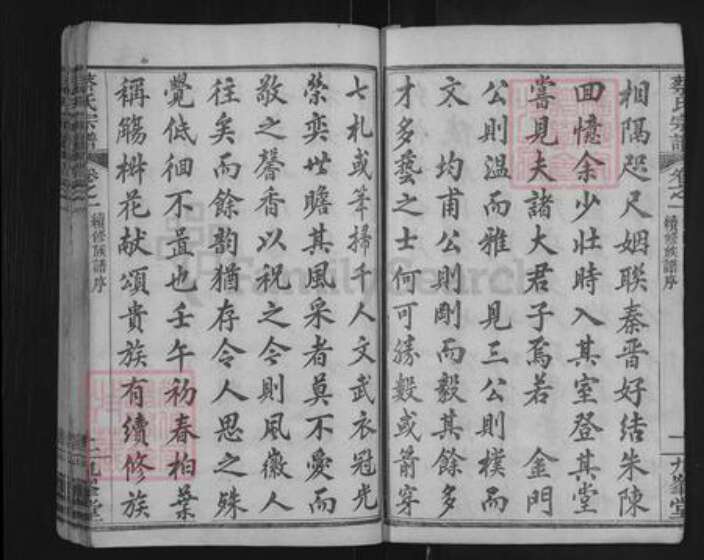 蔡氏宗譜
卷之一
續修族譜序
九峯堂
相隔咫尺姻聯秦晉好結朱陳
回憶余少壯時入其室登其堂
嘗見夫諸大君子焉若 金門
公則溫而雅 見三公則樸而
文 均甫公則剛而毅其餘多
才多藝之士何可勝數或箭穿
七札或筆掃千人文武衣冠光
榮奕世瞻其風采者莫不愛而
敬之馨香以祝之今則風徽人
往矣而餘韵猶存令人思之殊
覺低徊不置也壬午初春柏葉
稱觴椒花献頌貴族有續修族
蔡氏宗譜
卷之一
續修族譜序
九峯堂
FamilySearch